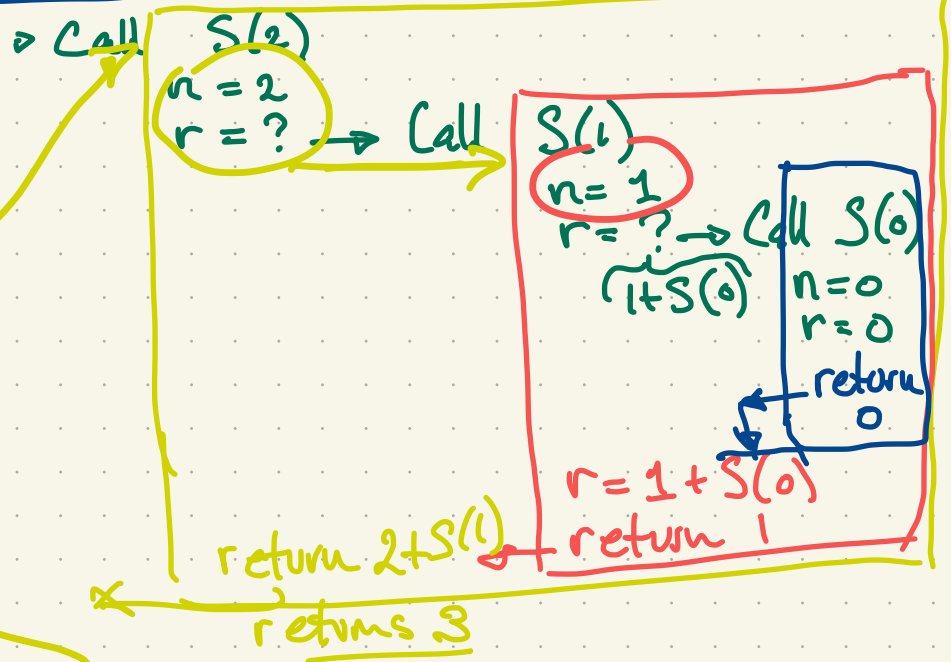 Call S(2)
n = 2
r = ? → Call S(1)
n = 1
r = ? → Call S(0)
1+S(0)
n=0
r=0
return
0
r = 1 + S(0)
return 1
return 2+S(1)
returns 3